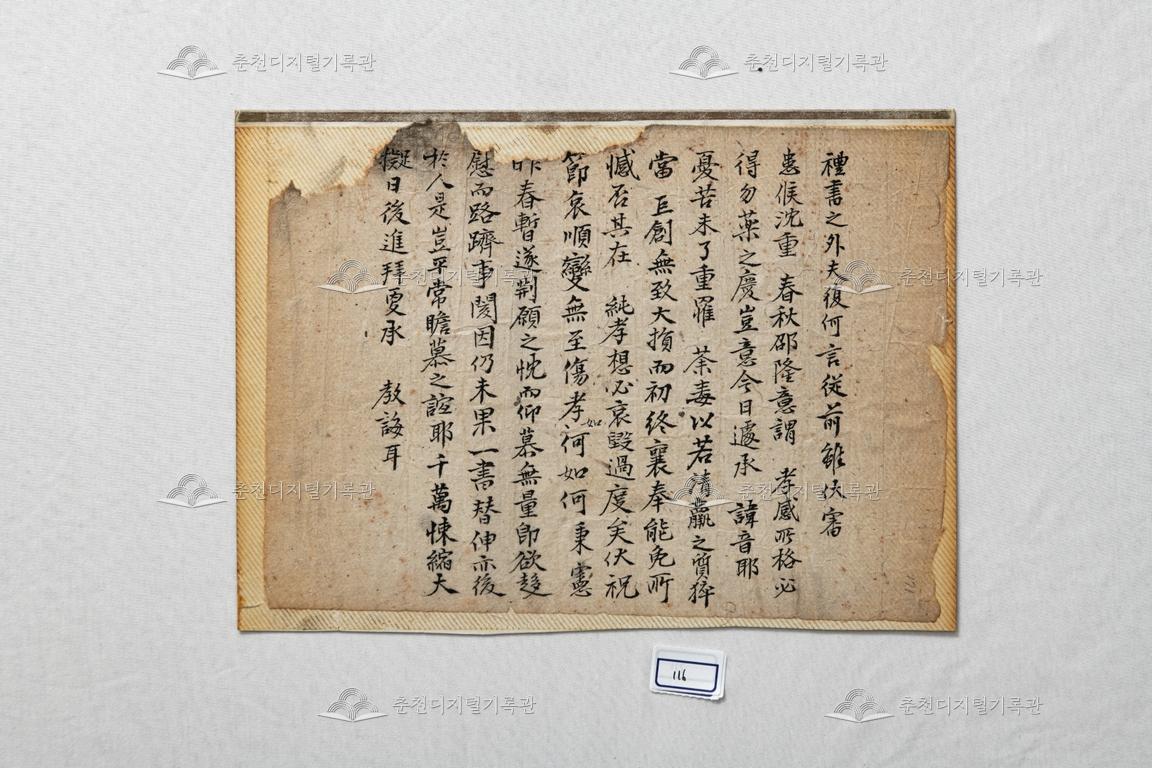 禮書之外夫復何言從前雖伏審
患候沈重 春秋邵隆意謂 孝感所格必
得勿藥之慶豈意今日遽承 諱音耶
憂苦未了重罹 荼毒以若清羸之質猝
當 巨創無致大損而初終襄奉能免所
憾否其在 純孝想必哀毀過度矣伏祝
節哀順變無至傷孝如何如何秉憲
昨春暫遂荆願之忱而仰慕無量卽欲趍
慰而路躋事閡因仍未果一書替伸亦後
於人是豈平常瞻慕之誼耶千萬悚縮大
擬日後進拜更承 敎誨耳
116
춘천디지털기록관
춘천디지털기록관
춘천디지털기록관
춘천디지털기록관
춘천디지털기록관
춘천디지털기록관
춘천디지털기록관
춘천디지털기록관